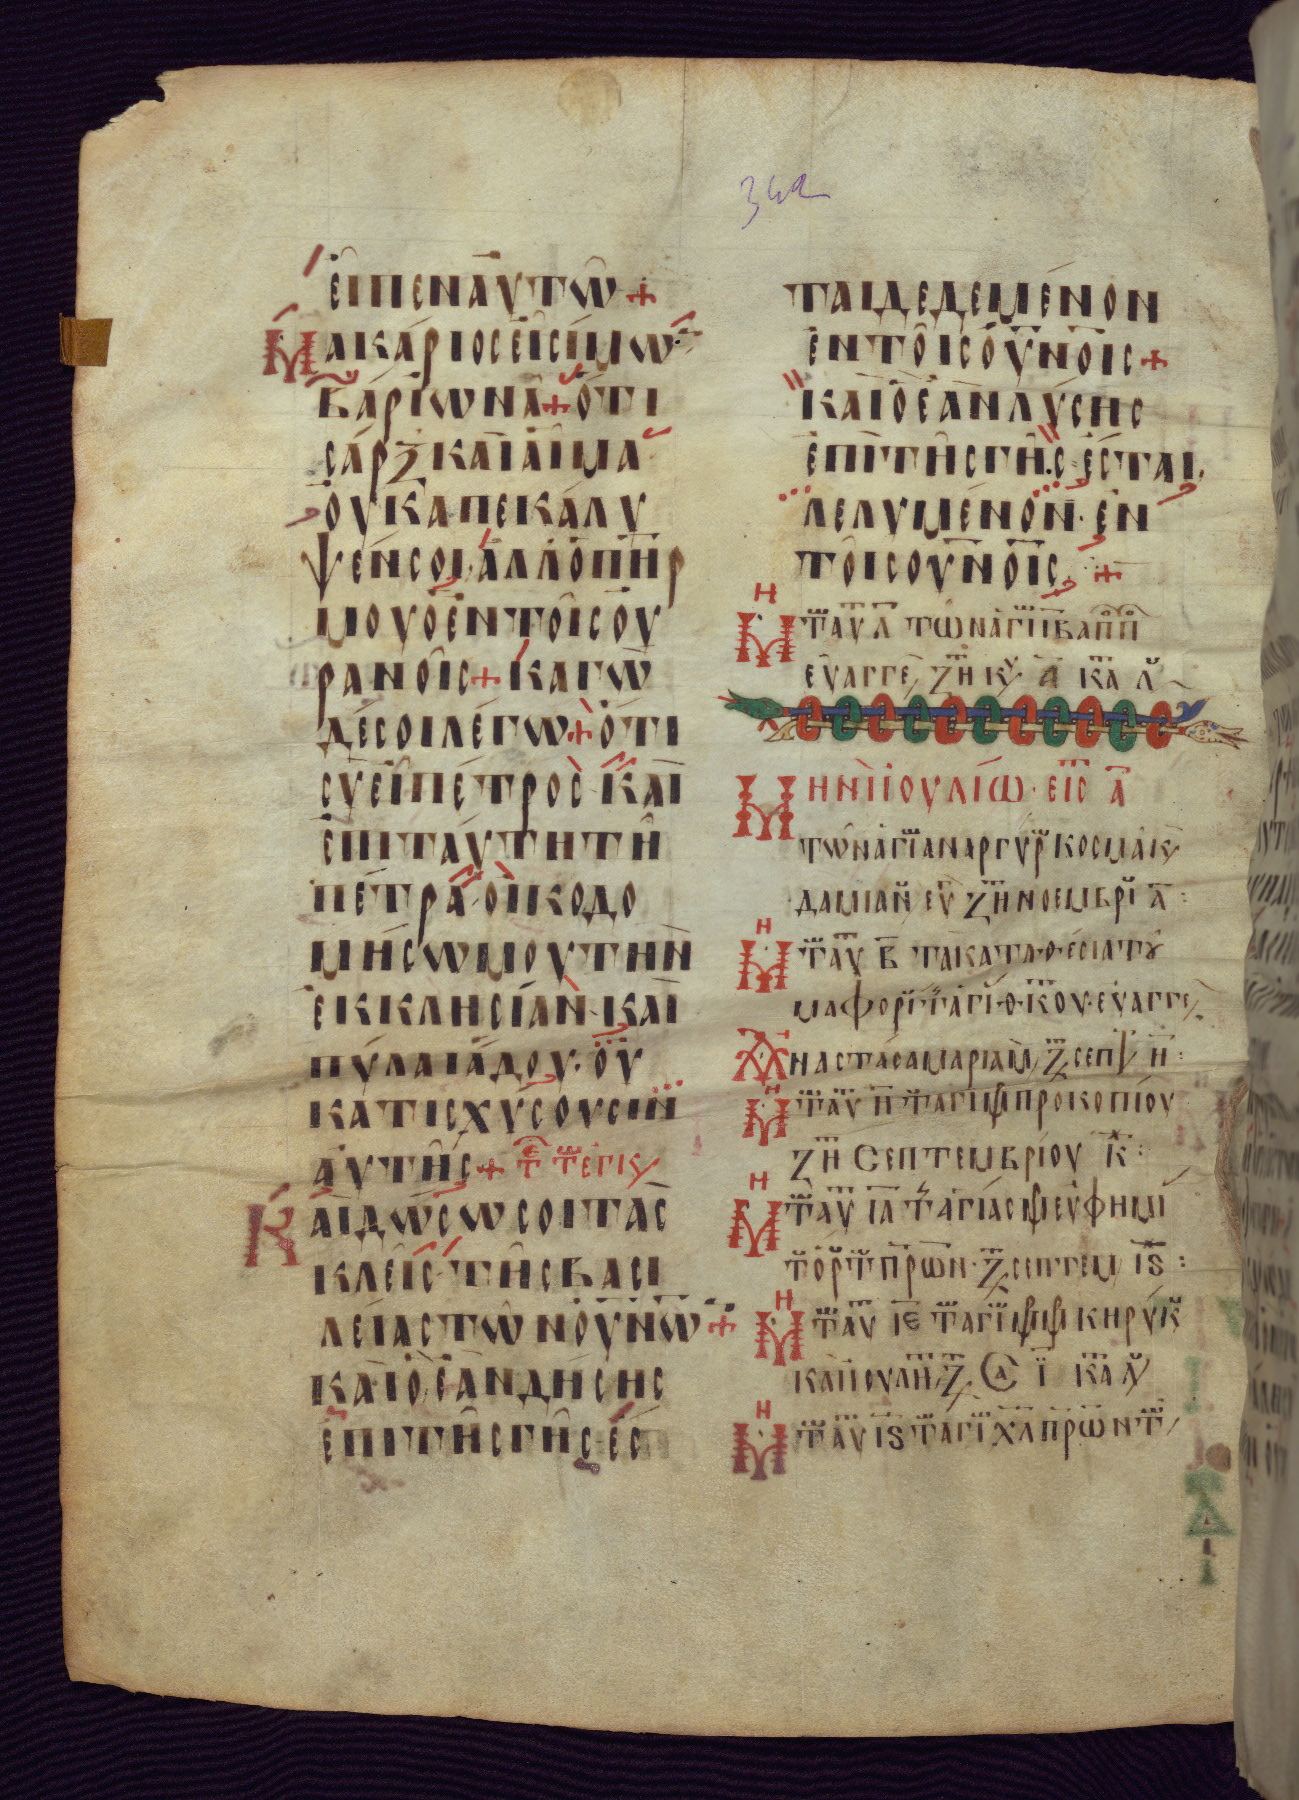 342
ἐῖπεναυτῶ+
Μακάριοσεῖσίμω
Βαριωνᾶ+ὅτι
σάρξκαὶαῖμα
ὀυκαπεκάλυ
ψένσοι·ἀλλ᾽ὁπηρ
μουὁἐντοῖσου
ρανοῖς+καγὼ
δέσοιλέγω+ὅτι
σὺεῖπέτρος·καὶ
ἐπιταύτητῆ
πέτρᾳ·οἰκοδο
μήσωμουτὴν
ἐκκλησίαν·καὶ
πύλαιάδου·ὀυ
κατισχύσουσιν
αὐτῆς+
Καὶδώσωσοιτας
κλεῖς·τῆςβασι
λείαςτῶνουνῶ+
καὶὃἐὰνδήσης
ἐπιτῆςγῆς·ές
ταιδεδεμένον
ἐντοῖσουνοῖς+
καὶὃἐὰνλύσης
ἐπιτῆςγῆς·ἔσται
λελυμένον·ἐν
τοῖσουνοῖς+
Μη τ αυ λ τῶν ἁγι ιβ απ
εὐαγγε ζη κυ α κα λ
Μηνὶ ιουλίω· εις α
τῶν ἁγι αναργυρ κοσμα κ
δαμιαν ευ ζη νοεμβρι α:
Μη τ αυ β τα καταθεσια τ
μαφορι τ αγι θκου·ευαγγε
Αναστασα μαριαμ ζ σεπ η:
Μη τ αυ η τ αγι μ προκοπίου
ζη Σεπτεμβρίου κ:
Μη τ αυ ια τ αγίας μ ευφημι
τ ορ τ πρων· ζ σεπτεμ ις:
Μη τ αυ ιε τ αγι μ κηρύκ
κα ιουλιτ ζ Σα ι κα λ
Μη τ αυ ις τ αγι χλ πρων τ